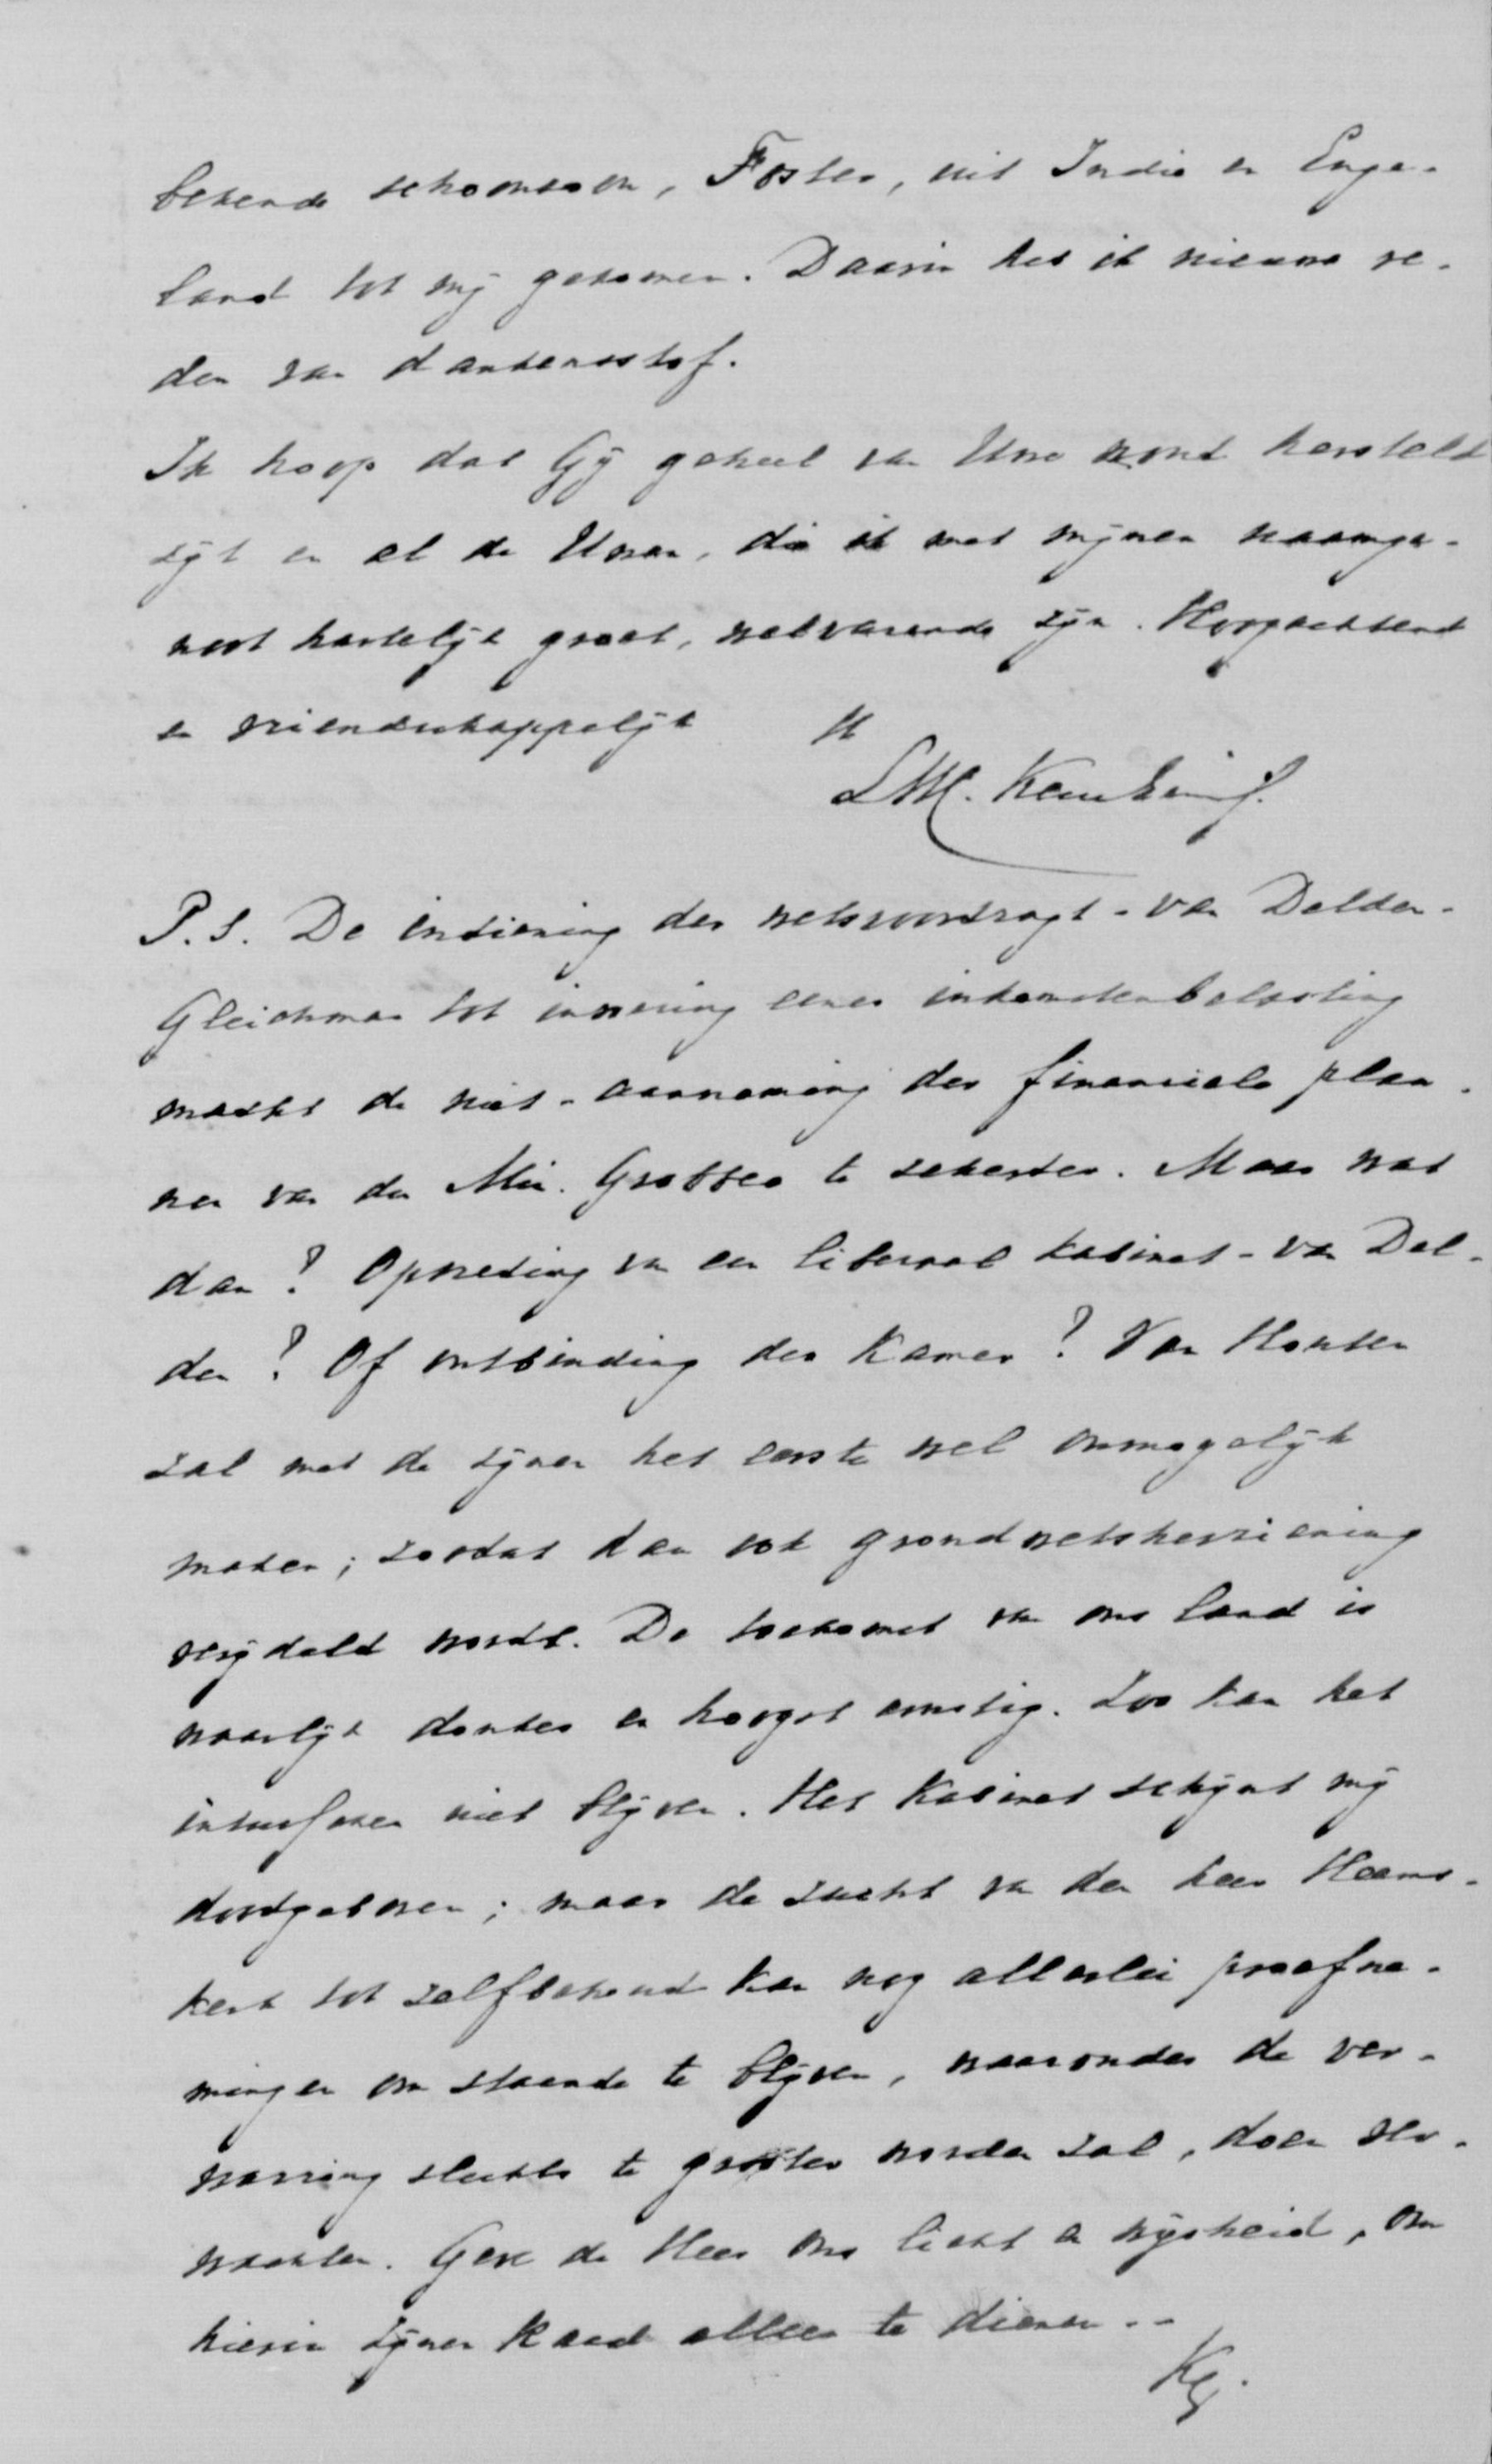 bekende schoonzoon, Foster, uit Indië en Enge-
land tot mij gekomen. Daarin heb ik nieuwe re-
den van dankensstof.
Ik hoop dat Gij geheel van Uwe wond hersteld
zijt en al de Uwen, die ik met mijnen naamge-
noot hartelijk groet, welvarende zijn. Hoogachtend
en vriendschappelijk
LWC. Keuchenius.
P.S. De indiening der wetsvoordragt - van Delden -
Gleichman tot invoering eener inkomstenbelasting
maakt de niet-aanneming der financiele plan-
nen van den Min. Grobbee te zekerder. Maar wat
dan? Optreding van een liberaal kabinet - van Del-
den? Of ontbinding der Kamer? Van Houten
zal met de zijnen het eerste wel onmogelijk
maken; zoodat dan ook grondwetsherziening
verijdeld wordt. De toekomst van ons land is
waarlijk donker en hoogst ernstig. Zoo kan het
intusschen niet blijven. Het Kabinet schijnt mij
doodgeboren; maar de zucht van den heer Heems-
kerk tot zelfbehoud kan nog allerlei proefne-
mingen om staande te blijven, waaronder de ver-
warring slechts te grooter worden zal, doen ver-
wachten. Geve de Heer ons licht en wijsheid, om
hierin Zijnen Raad alleen te dienen. -